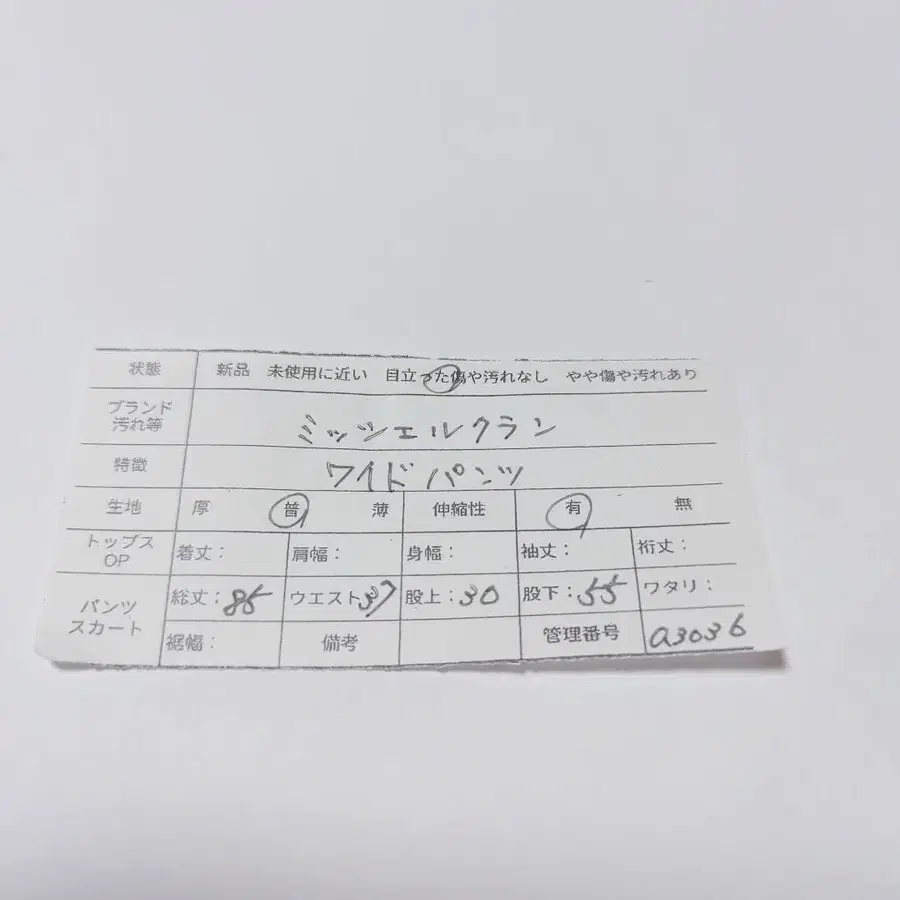 状態 新品 未使用に近い 目立った傷や汚れなし やや傷や汚れあり
ブランド
汚れ等 ミッシェルクラン
特徴 ワイドパンツ
生地 厚 普 薄 伸縮性 有 無
トップス
OP 着丈： 肩幅： 身幅： 袖丈： 裄丈：
パンツ
スカート 総丈：85 ウエスト37 股上：30 股下：55 ワタリ：
裾幅： 備考 管理番号 a3036